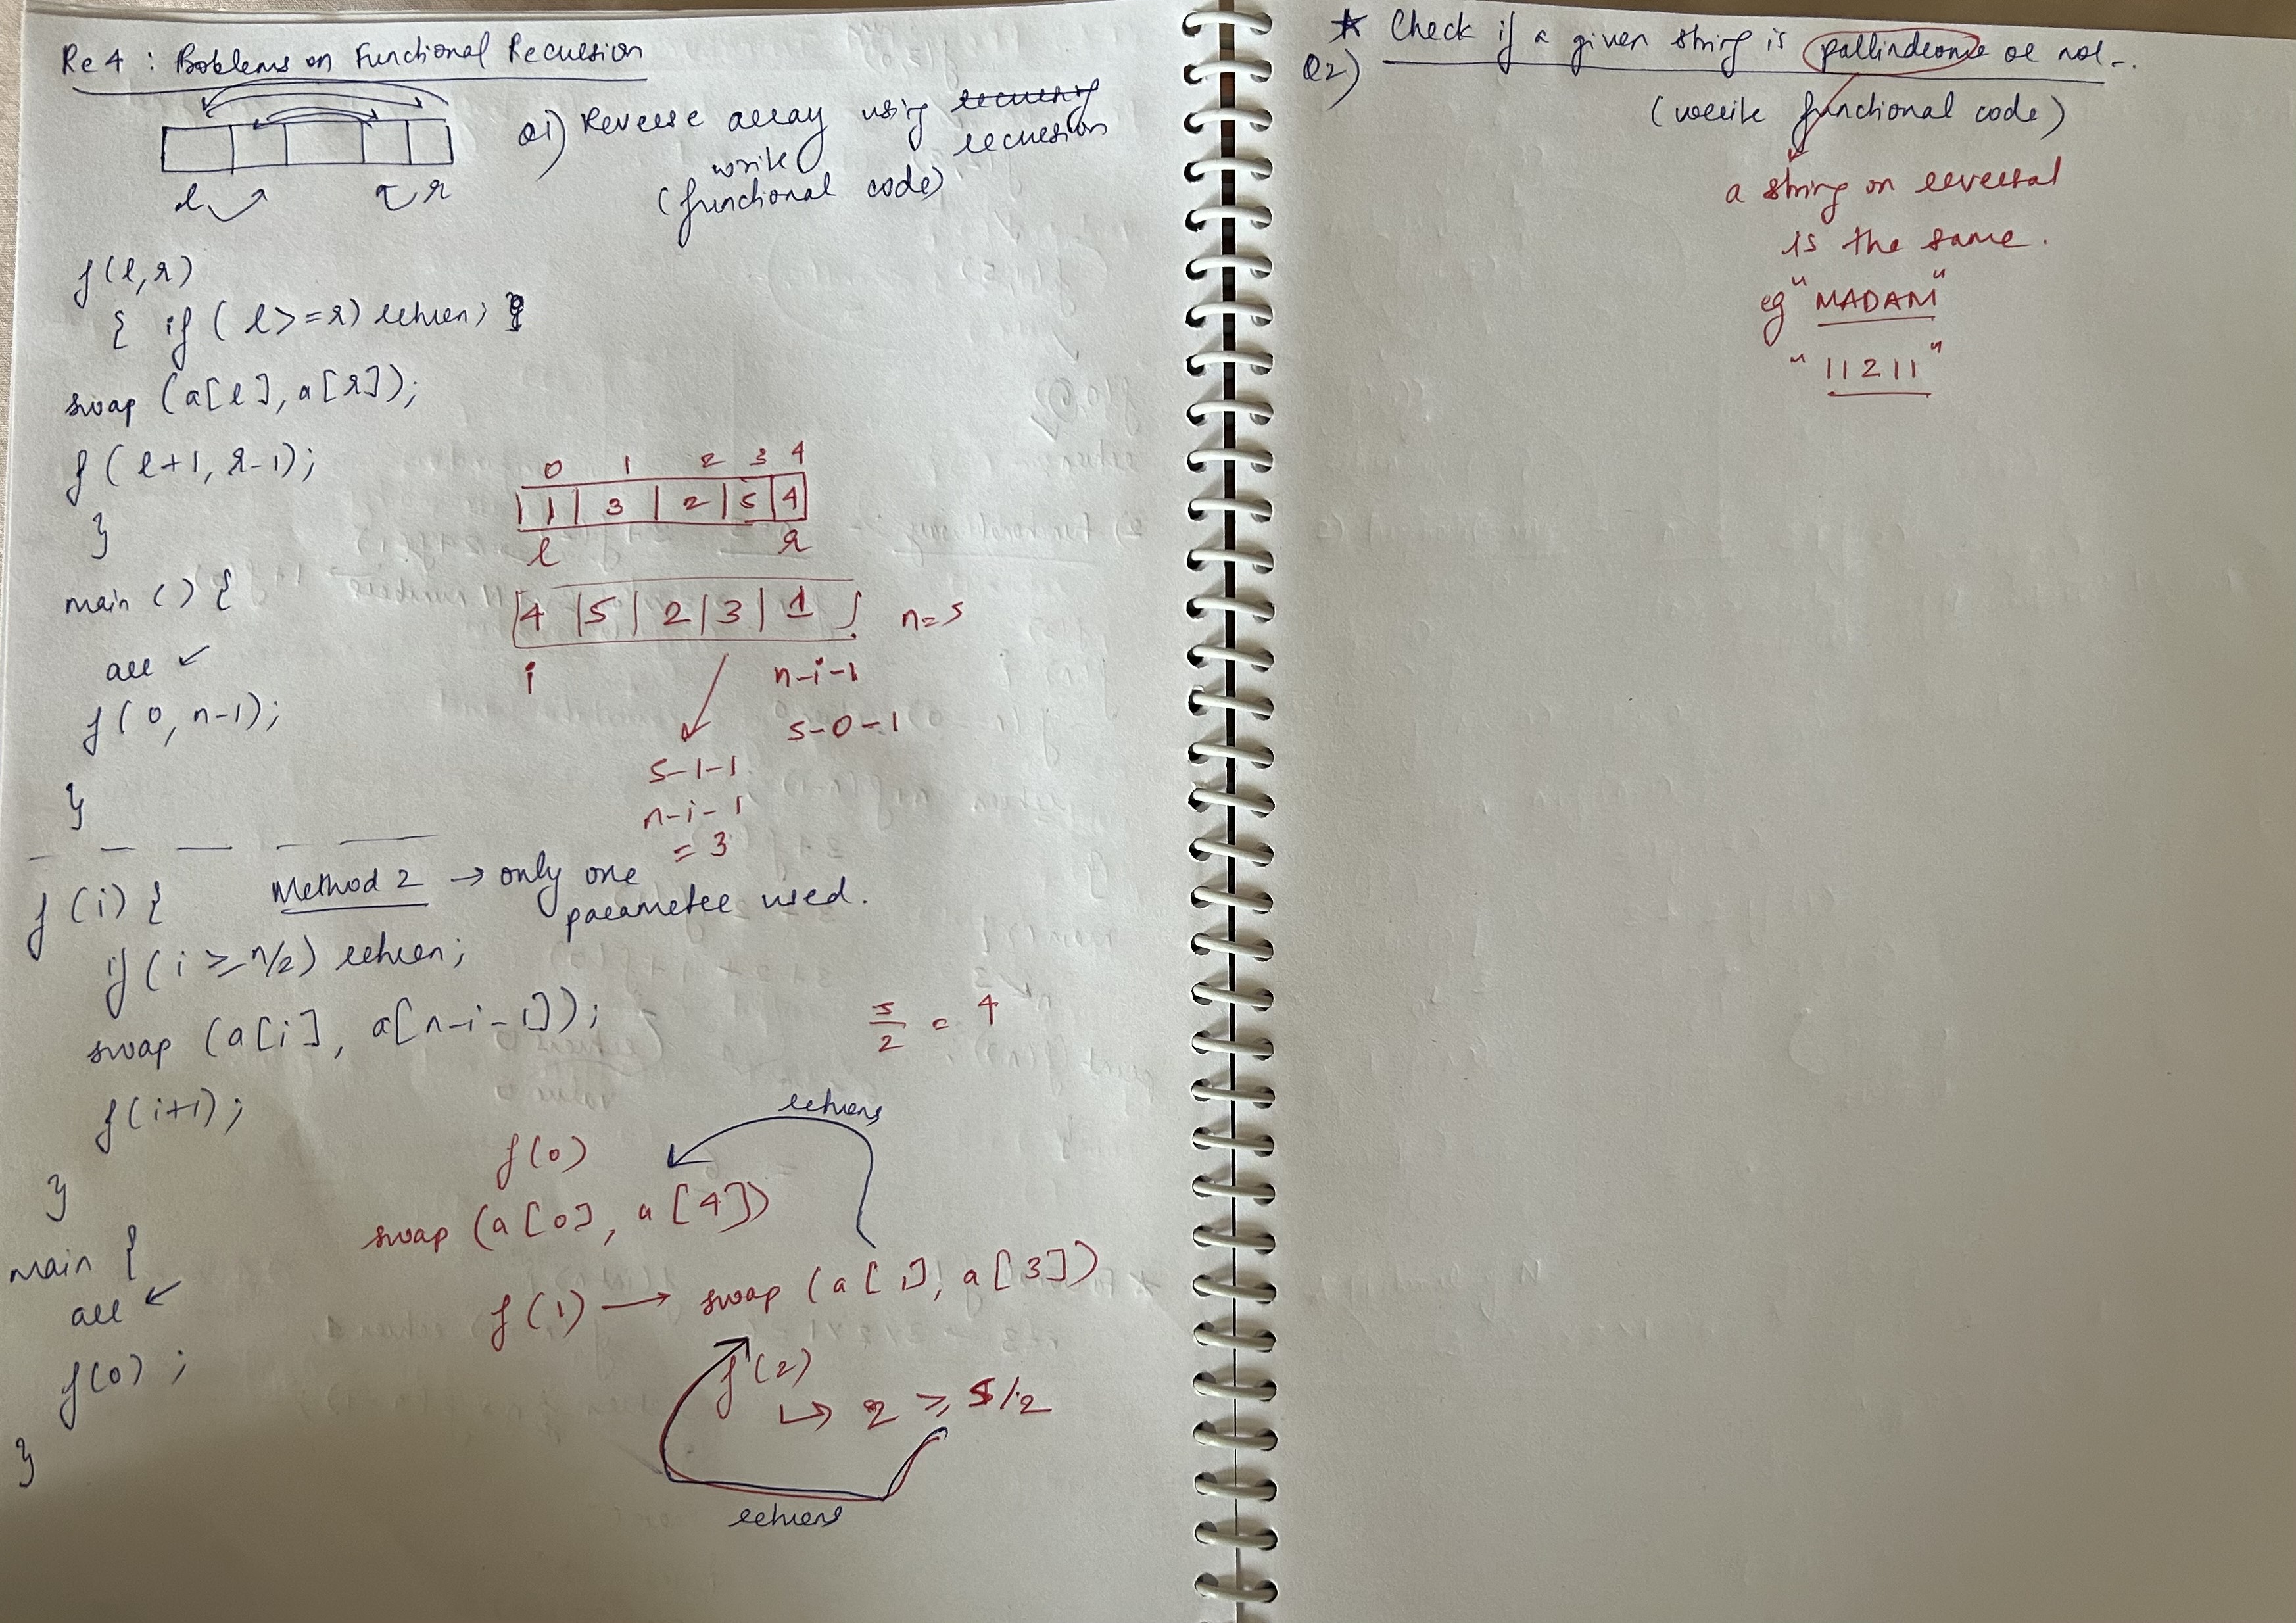 Re 4 : Problems on Functional Recursion
Q1) Reverse array using recursion
write
(functional code)
l r
f(l,r)
{ if (l>=r) return;
swap (a[l], a[r]);
f(l+1, r-1);
}
main () {
arr ✓
f(0, n-1);
}
0 1 2 3 4
1 3 2 5 4
l r
4 5 2 3 1 n=5
i n-i-1
5-0-1
5-1-1
n-i-1
= 3
Method 2 → only one
parameter used.
f(i) {
if (i ≥ n/2) return;
swap (a[i], a[n-i-1]);
f(i+1);
}
main {
arr ✓
f(0);
}
5/2 = 4
returns
f(0)
swap (a[0], a[4])
f(1) → swap (a[1], a[3])
f(2)
↳ 2 ≥ 5/2
returns
* Check if a given string is pallindrome or not-.
Q2)
(write functional code)
a string on reversal
is the same.
eg "MADAM"
"11211"